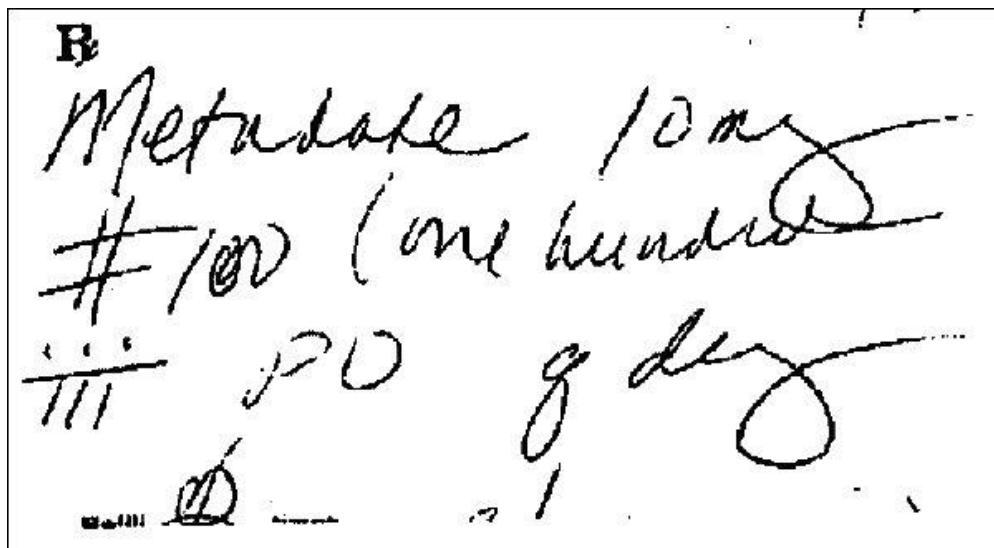 Rx
Metadate 10mg
# 100 (one hundred
iii PO q day